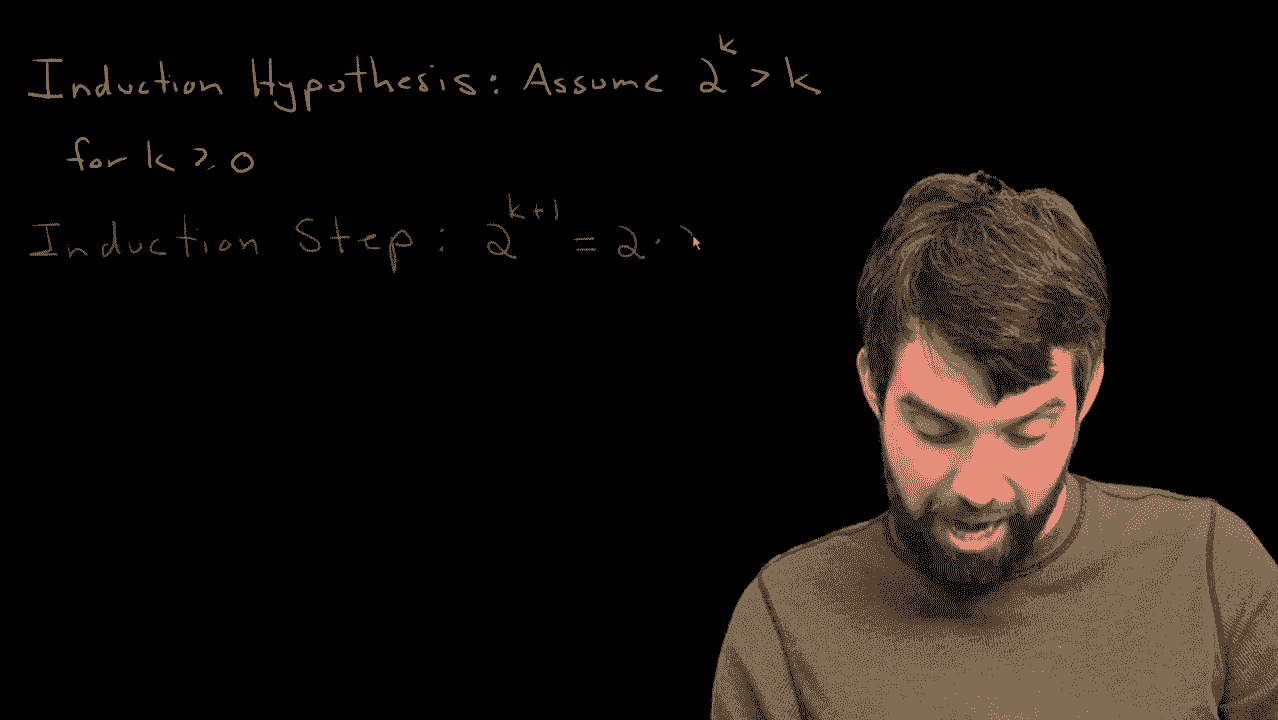 Induction Hypothesis: Assume 2^k > k
for k ≥ 0
Induction Step: 2^(k+1) = 2 ·